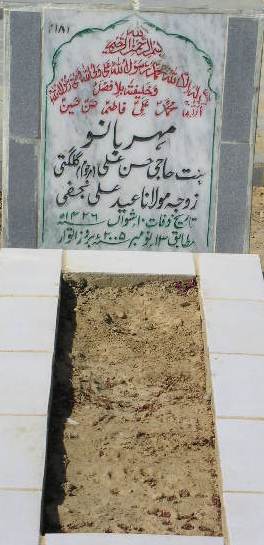 (۱۸)
بسم الله الرحمن الرحیم
لا اله الا الله محمد رسول الله علی ولی الله
وخلیفته بلا فصل
محمد علی فاطمه حسن حسین
مهر بانو
بنت حاجی حسن علی (مرحوم) گلگتی
زوجہ مولانا عید علی نجفی
تاریخ وفات ۱۰ شوال ۱۴۲۶ھ
مطابق ۱۳ نومبر ۲۰۰۵ء بروز اتوار